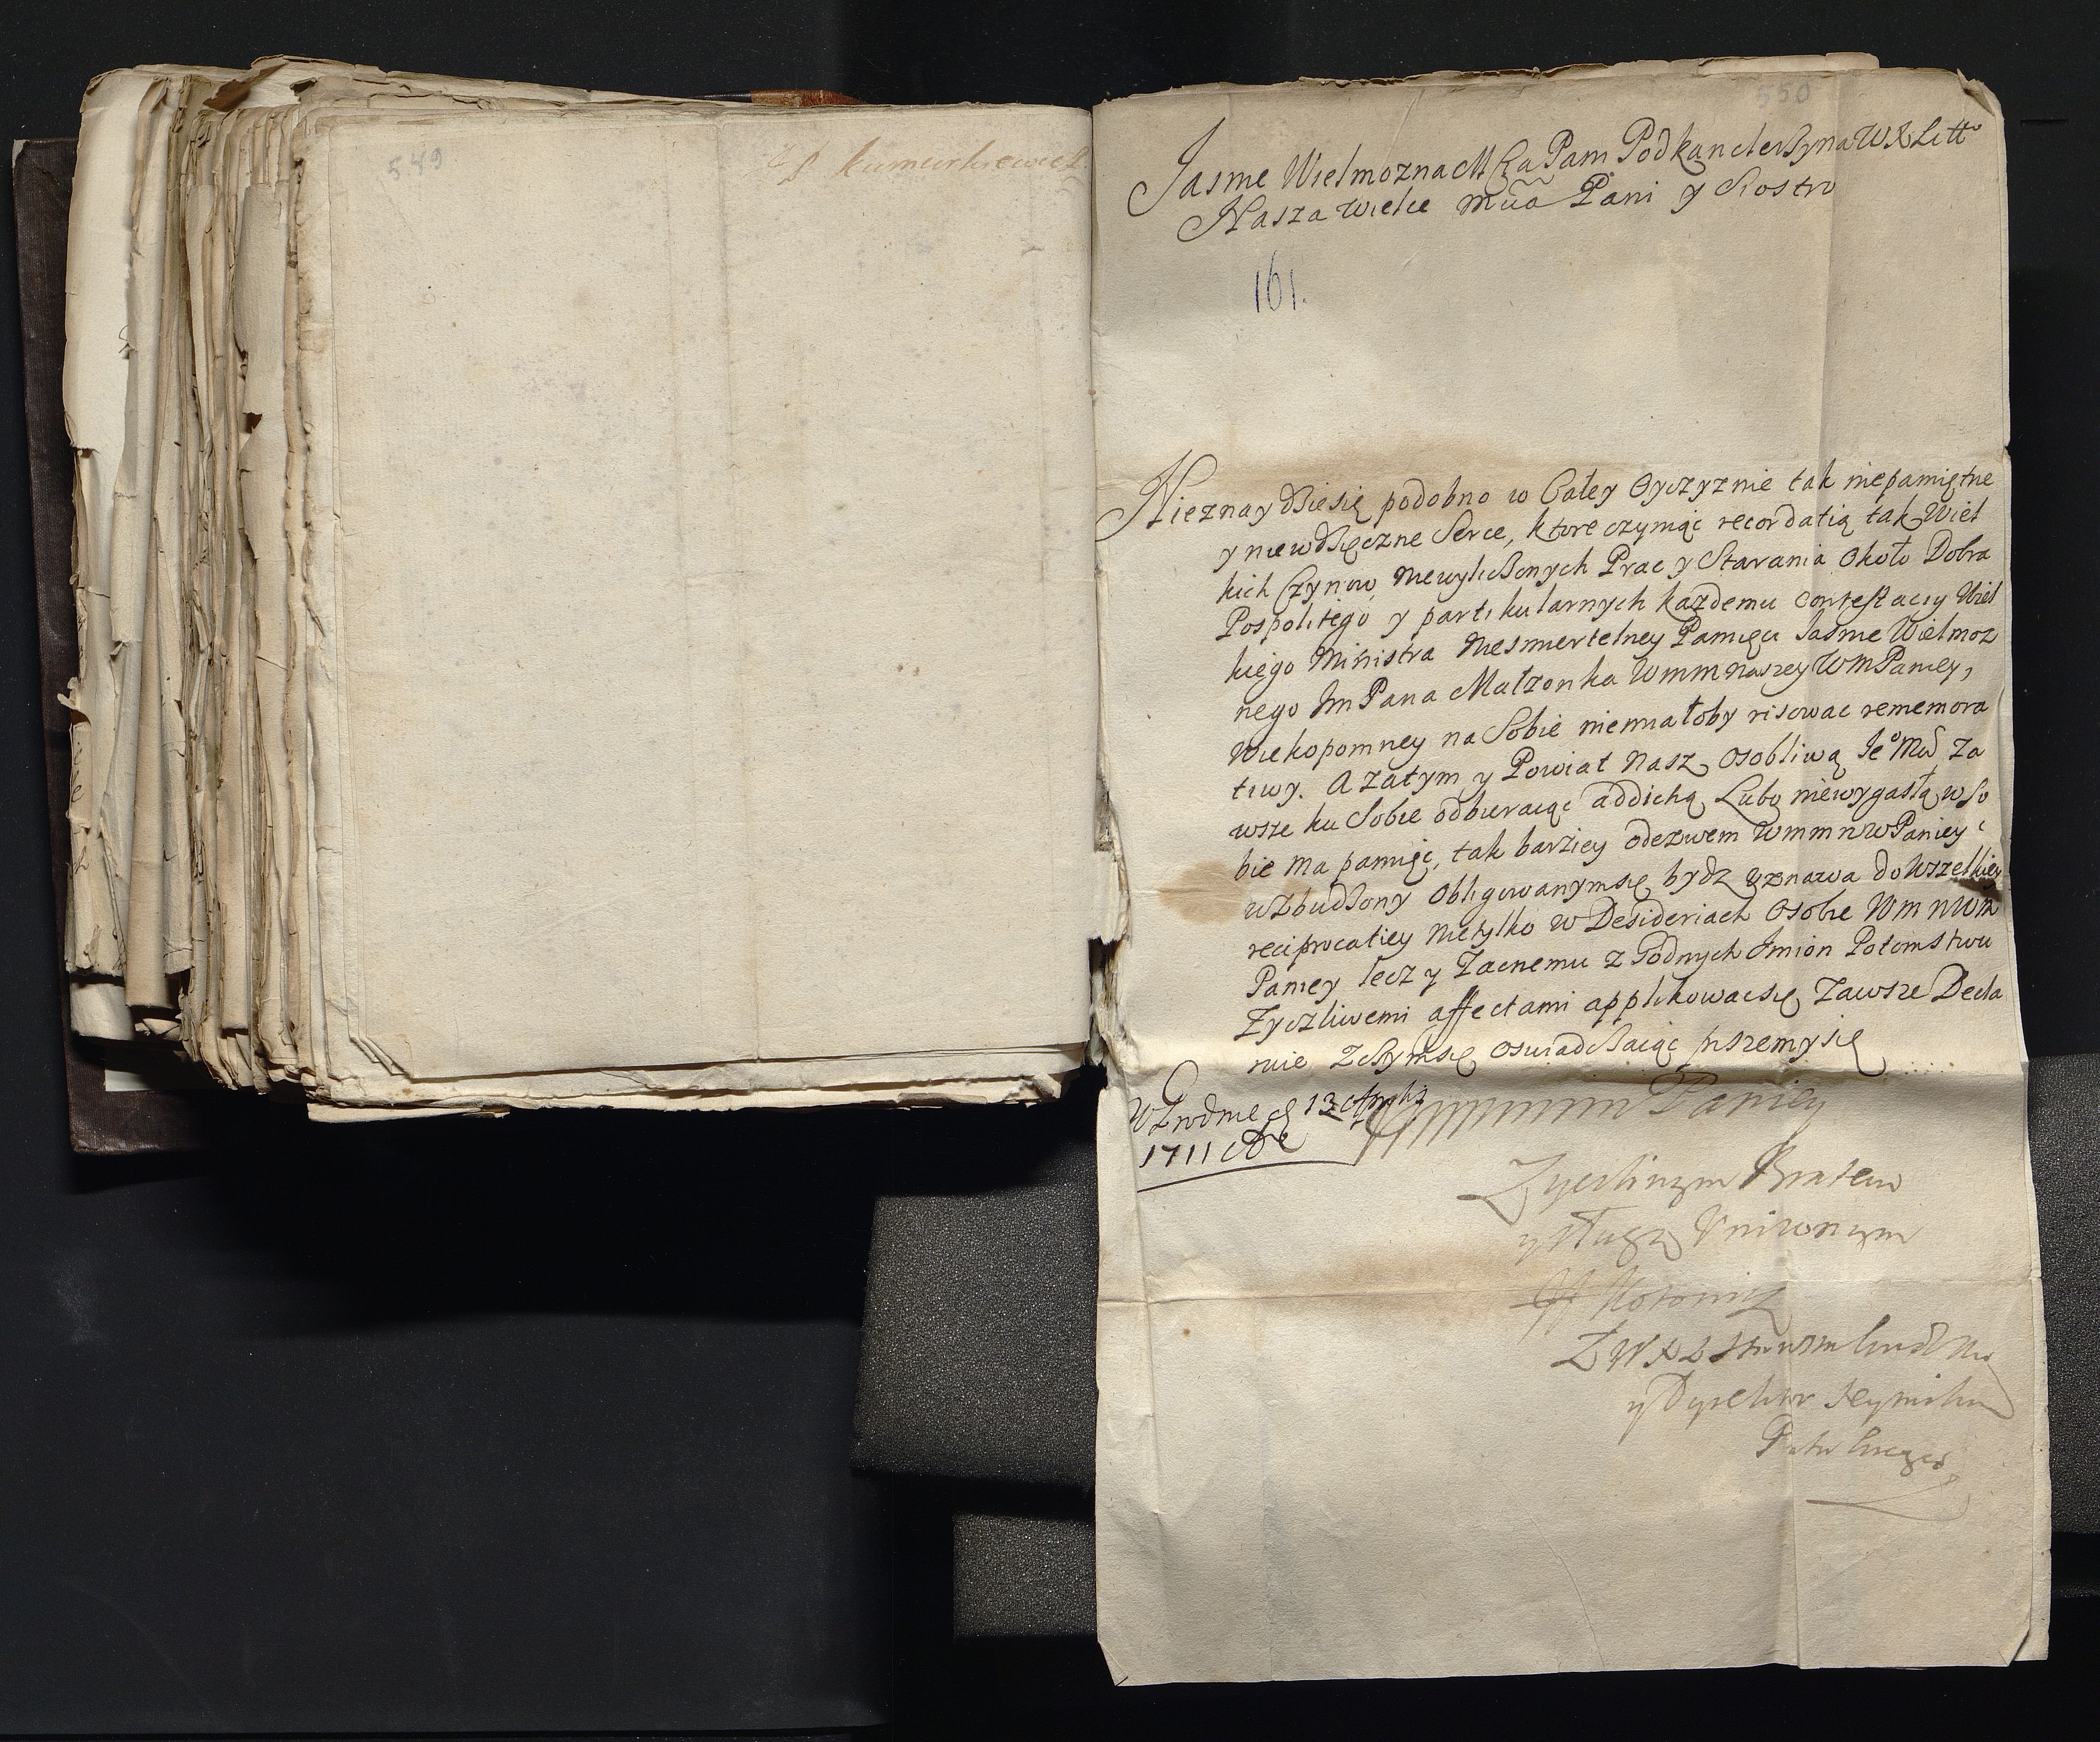 549
550
Jasnie Wielmozna M Pani Podkanclerzyna WXLitt
Nasza Wielce Mcia Pani y Siostro
161.
Nieznaydzie się podobno w Całey Oyczyznie tak niepamiętne
y niewdzięczne Serce, ktore czyniąc recordatią tak Wiel
kich Czynow, Niewyliczonych Prac y Starania Około Dobra
Pospolitego y partikularnych każdemu contestacyy Wiel
kiego Ministra Niesmiertelney Pamięci Jasnie Wielmoz
nego Jm Pana Małzonka Wmm naszey WMPaniey,
Wiekopomney na Sobie niemiałoby risowac rememora
tiwy. A zatym y Powiat Nasz Osobliwą Je° Mci Za
wsze ku Sobie odbieraiąc addictią Lubo niewygasłą w So
bie ma pamięc, tak barziey odezwem Wmm nwPaniey
wzbudzony Obligowanym się bydz uznawa do Wszelkiey
reciprocatiey Nietylko w Desideriach Osobie Wm nWm
Paniey lecz y Zacnemu z Godnych Imion Potomstwu
Zyczliwemi affectami applikowac się Zawsze Decla
ruie Z czym się oswiadczaiąc piszemy się
W Grodnie d 13 Aprila
1711 Ao
Wmmmm Paniey
Zyczliwym Bratem
y sługą Uniżonym
Z W X L
y Dyrektor Seymiku